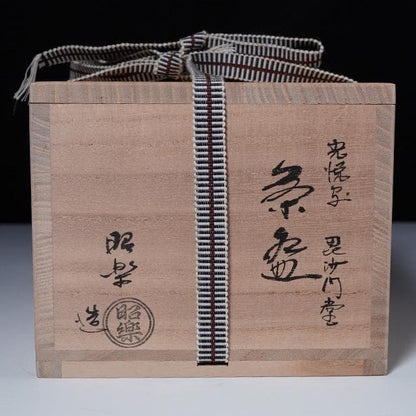 光悦写 毘沙門堂
茶盌
昭楽
造
昭樂